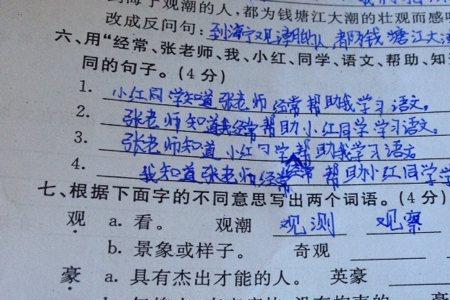 到海宁观潮的人,都为钱塘江大潮的壮观而感
改成反问句:到海宁观潮的人 都为钱塘江大潮
六、用“经常、张老师、我、小红、同学、语文、帮助、知
同的句子。(4分)
1. 小红同学知道张老师经常帮助我学习语文。
2. 张老师知道我经常帮助小红同学学习语文。
3. 张老师知道小红同学经常帮助我学习语文
4. 我知道张老师经常帮助小红同学学
七、根据下面字的不同意思写出两个词语。(4分)
观 a. 看。 观潮 观测 观察
b. 景象或样子。 奇观
豪 a. 具有杰出才能的人。 英豪